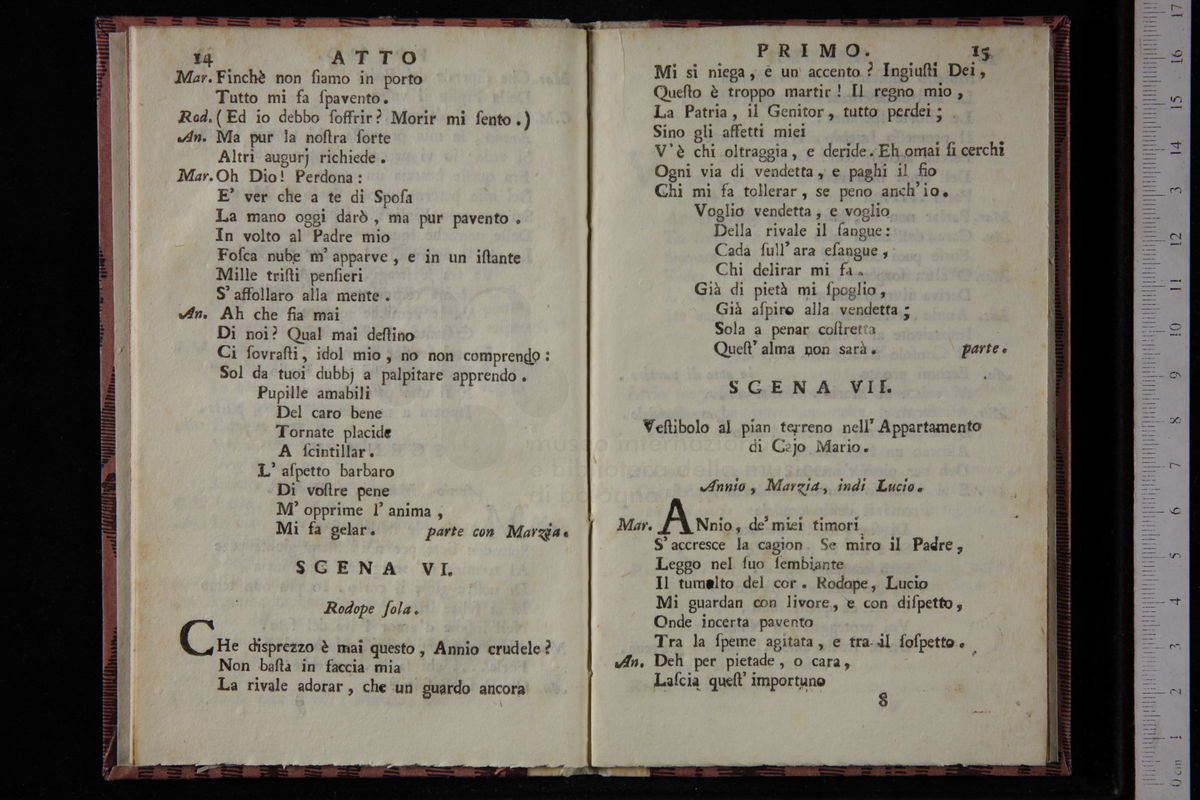 14 ATTO
Mar. Finchè non ſiamo in porto
Tutto mi fa ſpavento.
Rod. (Ed io debbo ſoffrir? Morir mi ſento.)
An. Ma pur la noſtra ſorte
Altri augurj richiede.
Mar. Oh Dio! Perdona:
E' ver che a te di Spoſa
La mano oggi darò, ma pur pavento.
In volto al Padre mio
Foſca nube m'apparve, e in un iſtante
Mille triſti penſieri
S'affollaro alla mente.
An. Ah che fia mai
Di noi? Qual mai deſtino
Ci ſovraſti, idol mio, no non comprendo:
Sol da tuoi dubbj a palpitare apprendo.
Pupille amabili
Del caro bene
Tornate placide
A ſcintillar.
L'aſpetto barbaro
Di voſtre pene
M'opprime l'anima,
Mi fa gelar. parte con Marzia.
SCENA VI.
Rodope ſola.
CHe disprezzo è mai questo, Annio crudele?
Non baſta in faccia mia
La rivale adorar, che un guardo ancora
PRIMO. 15
Mi si niega, e un accento? Ingiuſti Dei,
Queſto è troppo martir! Il regno mio,
La Patria, il Genitor, tutto perdei;
Sino gli affetti miei
V'è chi oltraggia, e deride. Eh omai ſi cerchi
Ogni via di vendetta, e paghi il fio
Chi mi fa tollerar, se peno anch'io.
Voglio vendetta, e voglio
Della rivale il ſangue:
Cada ſull'ara eſangue,
Chi delirar mi fa.
Già di pietà mi ſpoglio,
Già aſpiro alla vendetta;
Sola a penar coſtretta
Queſt'alma non sarà. parte.
SCENA VII.
Veſtibolo al pian terreno nell'Appartamento
di Cajo Mario.
Annio, Marzia, indi Lucio.
Mar. ANnio, de'miei timori
S'accresce la cagion. Se miro il Padre,
Leggo nel ſuo ſembiante
Il tumulto del cor. Rodope, Lucio
Mi guardan con livore, e con diſpetto,
Onde incerta pavento
Tra la ſpeme agitata, e tra il ſoſpetto.
An. Deh per pietade, o cara,
Laſcia queſt'importuno
8
museo internazionale
e biblioteca della musica
di bologna